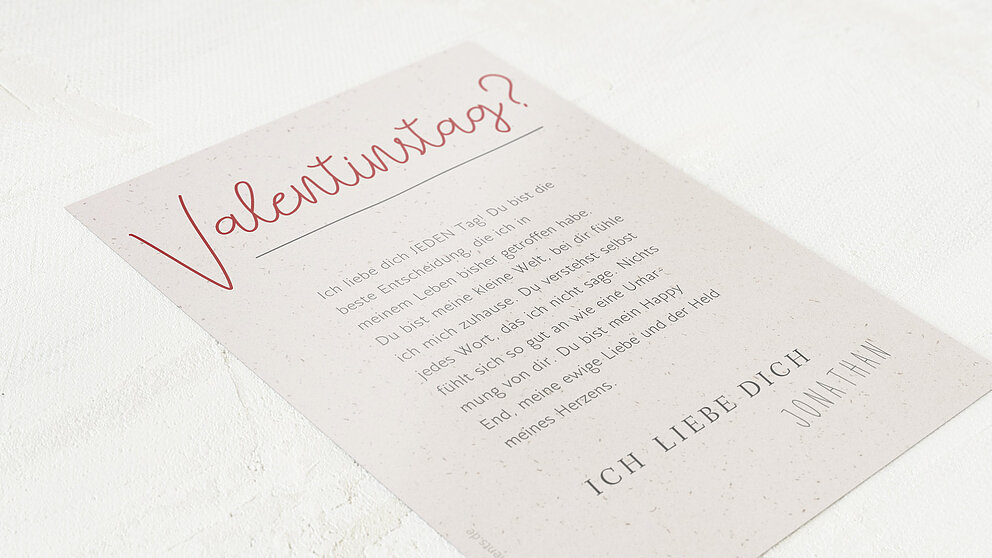 Valentinstag?
Ich liebe dich JEDEN Tag! Du bist die
beste Entscheidung, die ich in
meinem Leben bisher getroffen habe.
Du bist meine kleine Welt , bei dir fühle
ich mich zuhause. Du verstehst selbst
jedes Wort, das ich nicht sage. Nichts
fühlt sich so gut an wie eine Umar-
mung von dir. Du bist mein Happy
End, meine ewige Liebe und der Held
meines Herzens.
ICH LIEBE DICH
JONATHAN